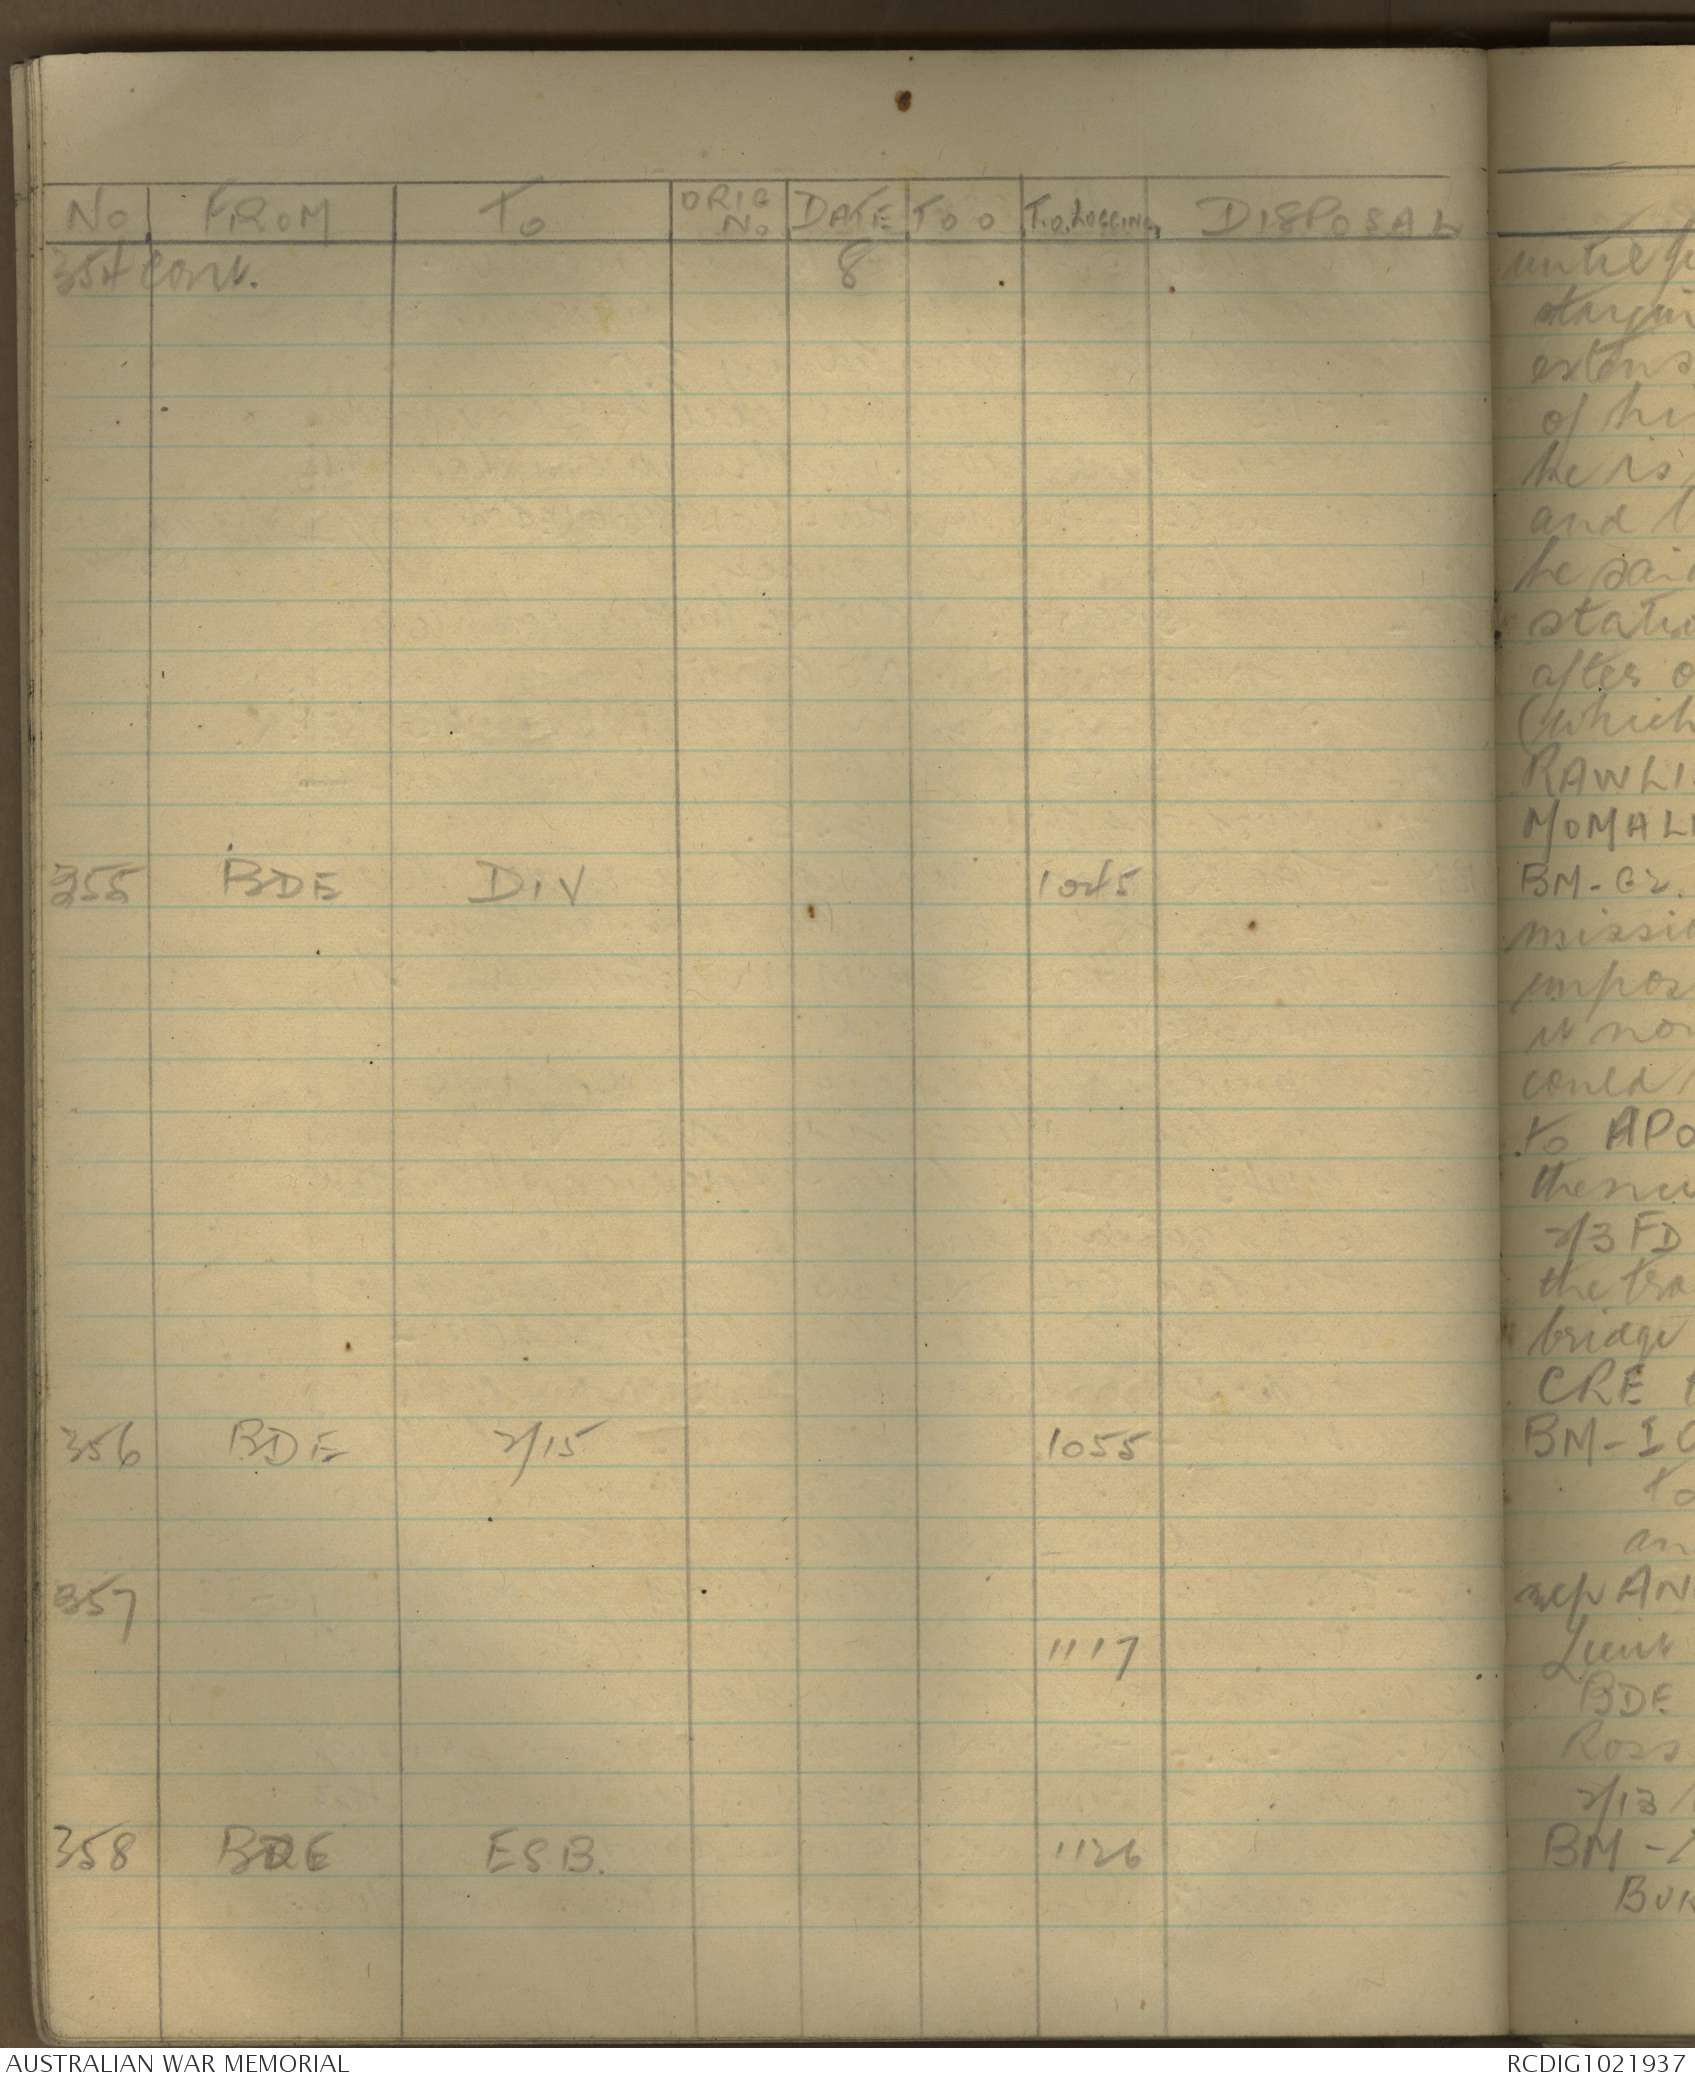 No FROM TO ORIG No. DATE TOO T.O.LOGGING DISPOSAL
354 cont. 8
355 BDE DIV 1045
356 BDE 2/15 1055
357
1117
358 BDE ESB. 1126
of
he is
and
he said
after
(which
RAWLI
MOMALI
BM - G2.
missi
impos
it
could
to APO
2/3 FD
the tra
bridge
CRE
BM - I
to
an
rep AN
Lieut
BDE
Ross
2/13
BM -
BUR
AUSTRALIAN WAR MEMORIAL
RCDIG1021937